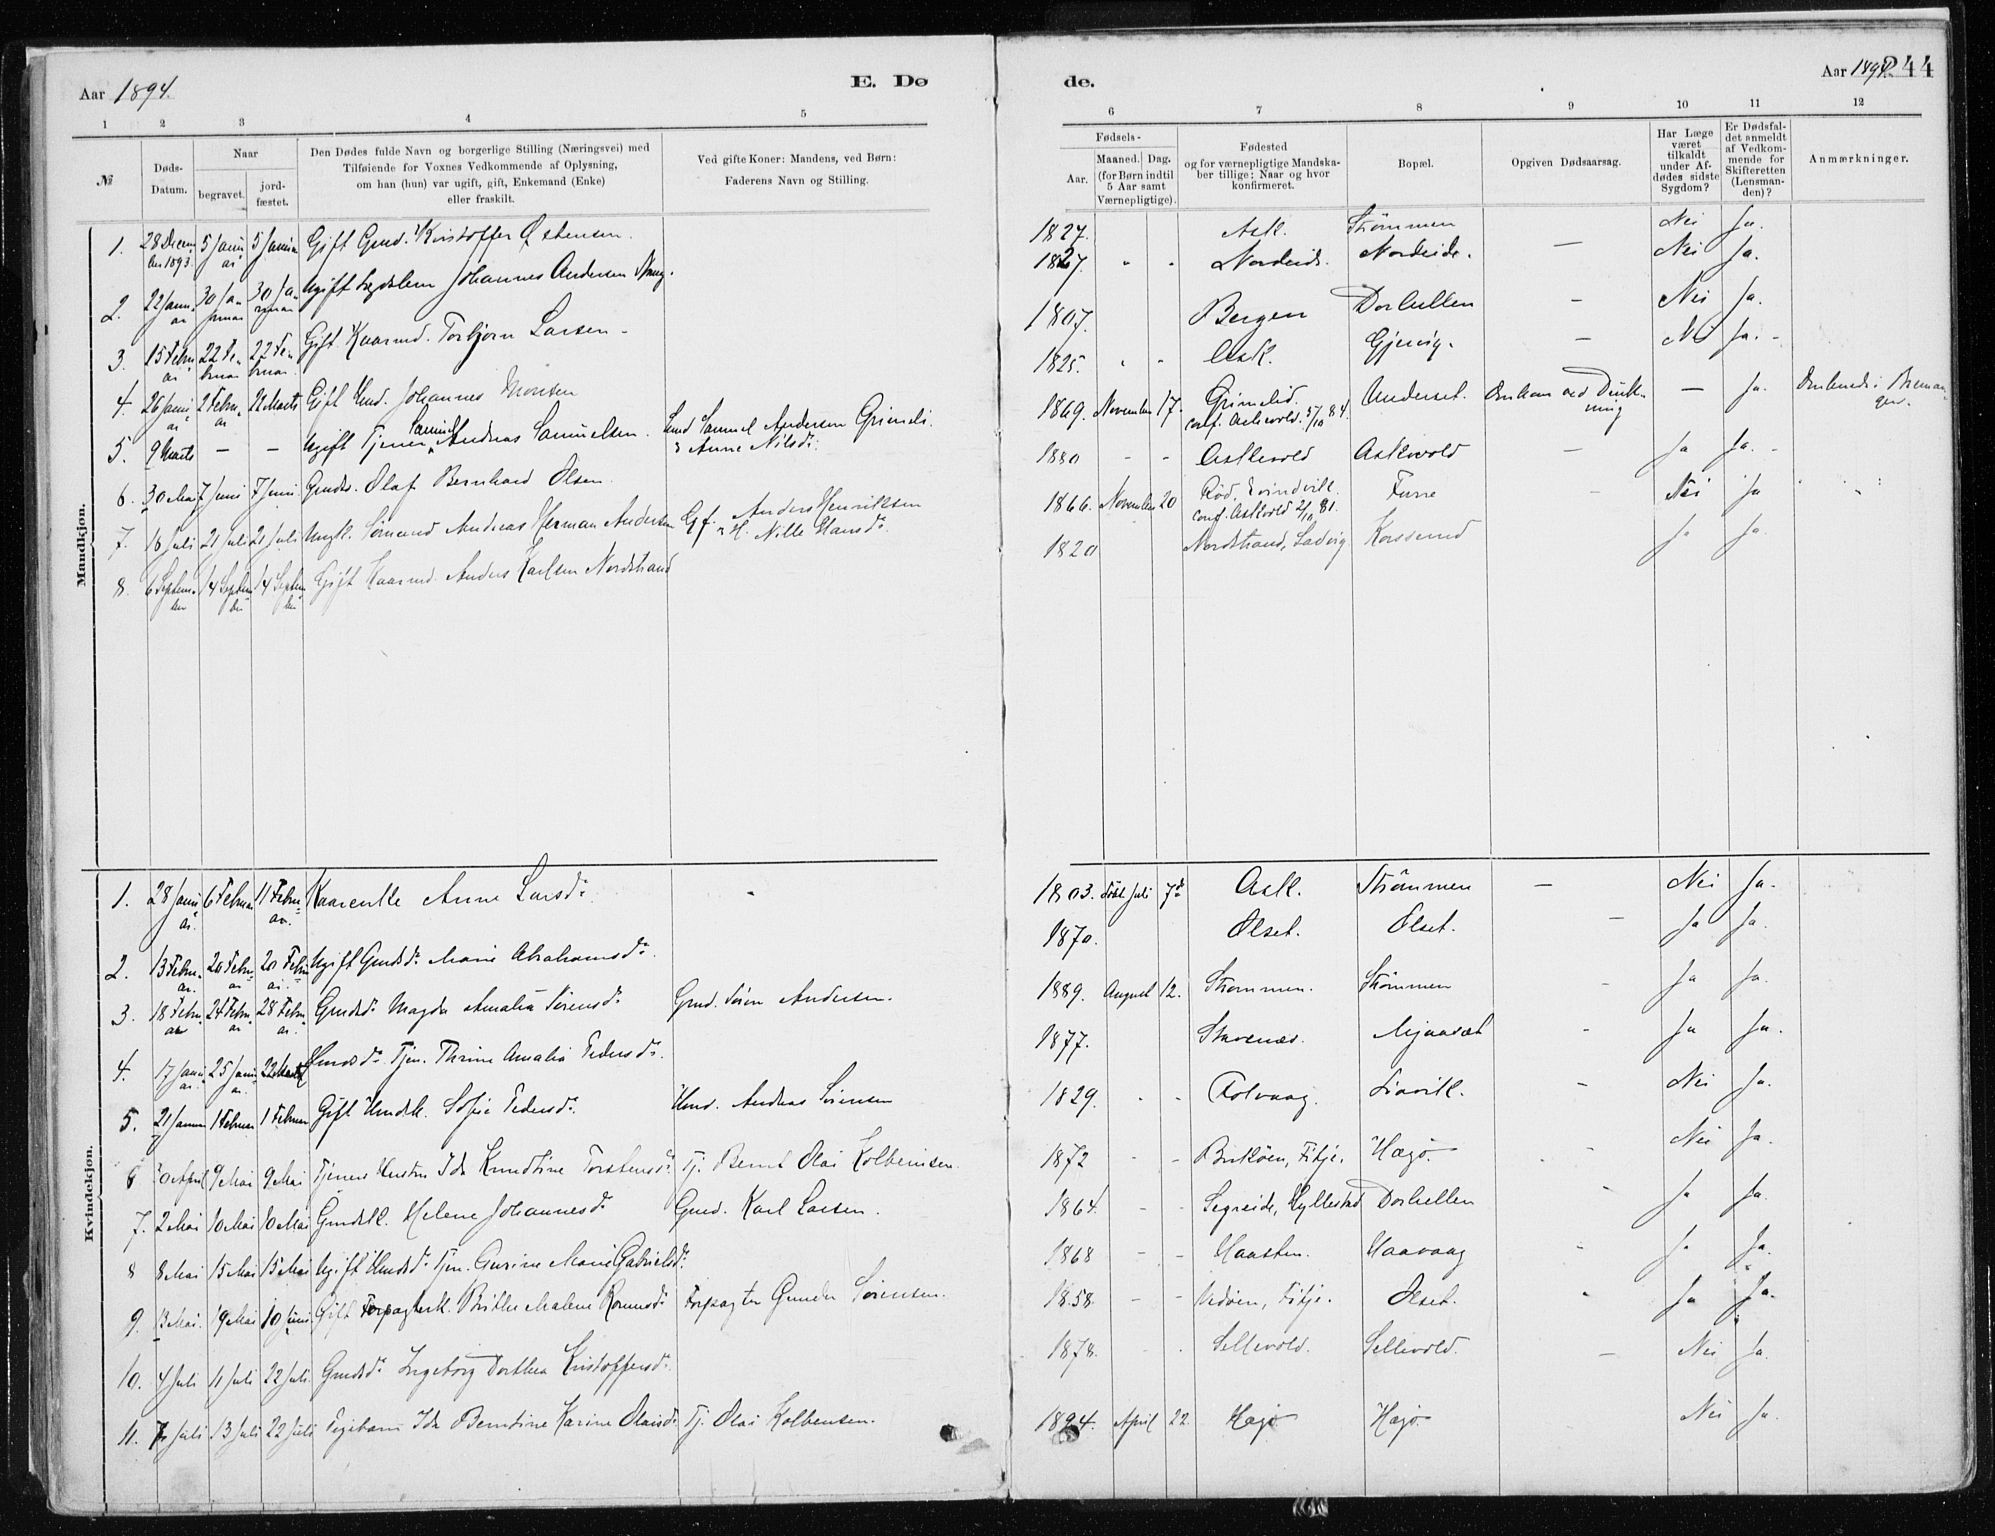 Aar 1894.
E. Dø
de.
Aar 1894.
244
1 2 3 4 5 6 7 8 9 10 11 12
№
Døds-Datum.
Naar
begravet.
jordfæstet.
Den Dødes fulde Navn og borgerlige Stilling (Næringsvei) med
Tilføiende for Voxnes Vedkommende af Oplysning,
om han (hun) var ugift, gift, Enkemand (Enke)
eller fraskilt.
Ved gifte Koner: Mandens, ved Børn:
Faderens Navn og Stilling.
Fødsels-
Aar.
Maaned. Dag.
(for Børn indtil
5 Aar samt
Værnepligtige).
Fødested
og for værnepligtige Mandska-
ber tillige: Naar og hvor
konfirmeret.
Bopæl.
Opgiven Dødsaarsag.
Har Læge
været
tilkaldt
under Af-
dødes sidste
Sygdom?
Er Dødsfal-
det anmeldt
af Vedkom-
mende for
Skifteretten
(Lensman-
den)?
Anmærkninger.
Mandkjøn.
1. 28 Decem-ber 1893. 5 Januar 5 Januar Gift Gmd. Kristoffer Østensen. 1827. Ask. Strømmen — Nei Ja.
2. 22 Januar 30 Januar 30 Januar Ugift Lægdslem Johannes Andersen 1827. " " Nordeide. Nordeide. Nei Ja.
3. 15 Februar 22 Februar 22 Februar Gift Kaarmd. Torbjørn Larsen – 1807. Bergen Dorhellen – Nei Ja.
4. 26 Januar 2 Februar 21 Marts Gift Hmd. Johannes Monsen 1825. " – Ask. Gjervig. – Nei Ja. –
5. 9 Marts — — Ugift Tjener Samuel Andreas Samuelsen. Hmd Samuel Andersen Grimeli. & Anne Nilsd: 1869. November 17. Grimelid. conf. Askevold. 5/10 84. Anderset. Omkom ved Drukning — Ja. Omkomst i Bremanger.
6. 30 Mai 7 Juni 7 Juni Gmds. Olaf Bernhard Olsen. 1880 – – Askevold Askevold – Ja Ja. –
7. 16 Juli 21 Juli 21 Juli Ungk. Sømand Andreas Herman Andersen Gf. Anders Henriksen & H. Nille Hansd: 1866. November 20 Rød, Evindvik. conf. Askevold 2/10 81. Furre – Nei Ja
8. 6 September 14 September 14 September Gift Kaarmd. Anders Karlsen Nordstrand 1820 Nordstrand, Ladvig. Korssund Ja Ja.
Kvindekjøn.
1. 28 Januar 6 Februar 11 Februar. Kaarenke Anne Larsd: 1803. døbt Juli 7de Ask. Strømmen – Nei Ja.
2. 13 Februar. 20 Februar 20 Februar. Ugift Gmdsd: Marie Abrahamsd: 1870. Olset. Olset. – Ja Ja.
3. 18 Februar 24 Februar 28 Februar. Gmdsd: Magda Amalia Sørensd: Gmd. Søren Andersen. 1889. August 12. Strømmen. Strømmen Ja Ja.
4. 17 Januar. 25 Januar. 22 Marts Hmdsd: Tjen. Thrine Amalia Pedersd: 1877. Stavenæs. Mjaasæt - Ja Ja.
5. 21 Januar 1 Februar 1 Februar Gift Hmdsk. Sofie Pedersd: Hmd. Andreas Sørensen 1829. – – Folvaag. Liavik. – Nei Ja.
6 30 April 9 Mai 9 Mai Tjeners Hustru Ida Knudtine Torstensd: Tj. Bernt Olai Kolbensen. 1872 – – Buskøen, Fitje. Hægø. Nei Ja.
7. 2 Mai 10 Mai 10 Mai Gmdsk. Helene Johannesd: Gmd. Karl Larsen. 1864. – – Segreide, Hyllestad Dorhellen - Ja Ja.
8 8 Mai 15 Mai 15 Mai Ugift Hmdsd: Tjen. Gurine Marie Gabrielsd: 1868 – – Haasten. Haavaag - Ja Ja.
9. 13 Mai. 19 Mai 10 Juni Gift Forpagterk. Brithe Malene Rasmusd: Forpagter Gunder Sørensen. 1858. – – Vedøen, Fitje. Olset. Ja Ja.
10. 4 Juli 11 Juli 22 Juli. Gmdsd: Ingeborg Dorthea Kristoffersd: 1878. - . Sellevold. Sellevold. – Nei Ja.
11. 7 Juli 13 Juli 22 Juli Pigebarn Ida Berntine Karine Olaisd: Tj. Olai Kolbensen. 1894. April 22 Hægø Hægø Nei Ja.